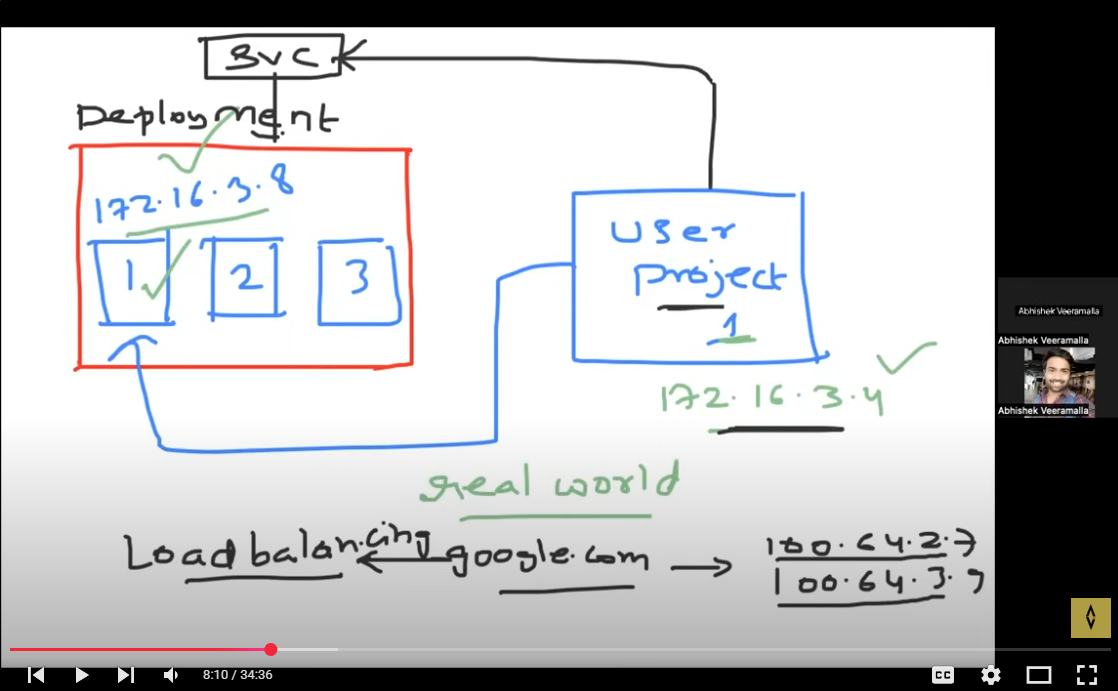 SVC
Deployment
172.16.3.8
1 2 3
User
project
1
172.16.3.4
real world
Load balancing google.com
100.64.2.7
100.64.3.9
Abhishek Veeramalla
Abhishek Veeramalla
Abhishek Veeramalla
8:10 / 34:36
CC